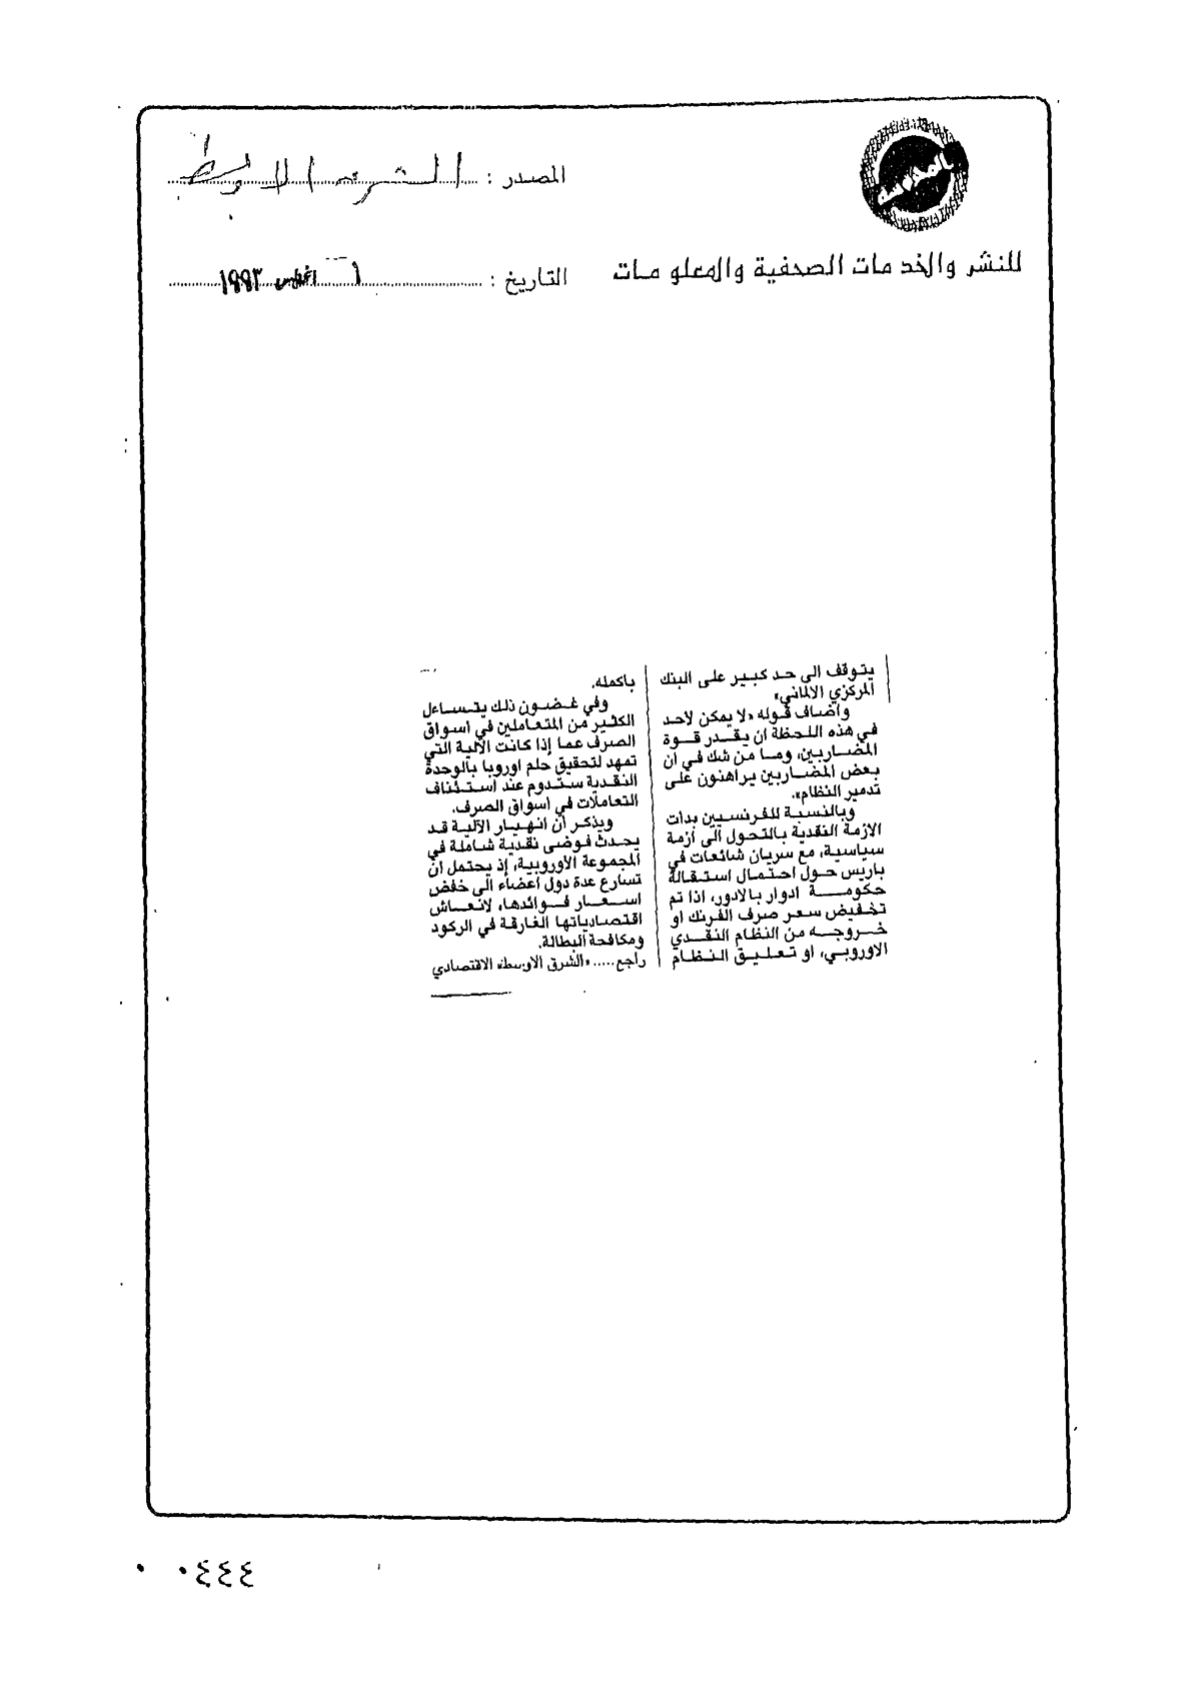 المصدر : الشرق الاوسط
للنشر والخدمات الصحفية والمعلومات
التاريخ : ١ اغسطس ١٩٩٣
يتوقف الى حد كبير على البنك
المركزي الالماني»
واضاف قوله «لا يمكن لاحد
في هذه اللحظة ان يقدر قوة
المضاربين، وما من شك في ان
بعض المضاربين يراهنون على
تدمير النظام».
وبالنسبة للفرنسيين بدات
الازمة النقدية بالتحول الى أزمة
سياسية، مع سريان شائعات في
باريس حول احتمال استقالة
حكومة ادوار بالادور، اذا تم
تخفيض سعر صرف الفرنك او
خروجه من النظام النقدي
الاوروبي، او تعليق النظام
باكمله.
وفي غضون ذلك يتساءل
الكثير من المتعاملين في اسواق
الصرف عما إذا كانت الآلية التي
تمهد لتحقيق حلم اوروبا بالوحدة
النقدية ستدوم عند استئناف
التعاملات في اسواق الصرف.
ويذكر ان انهيار الآلية قد
يحدث فوضى نقدية شاملة في
المجموعة الأوروبية، إذ يحتمل ان
تسارع عدة دول أعضاء الى خفض
اسعار فوائدها، لانعاش
اقتصادياتها الغارقة في الركود
ومكافحة البطالة.
راجع..... «الشرق الاوسط» الاقتصادي
٠٤٤٤